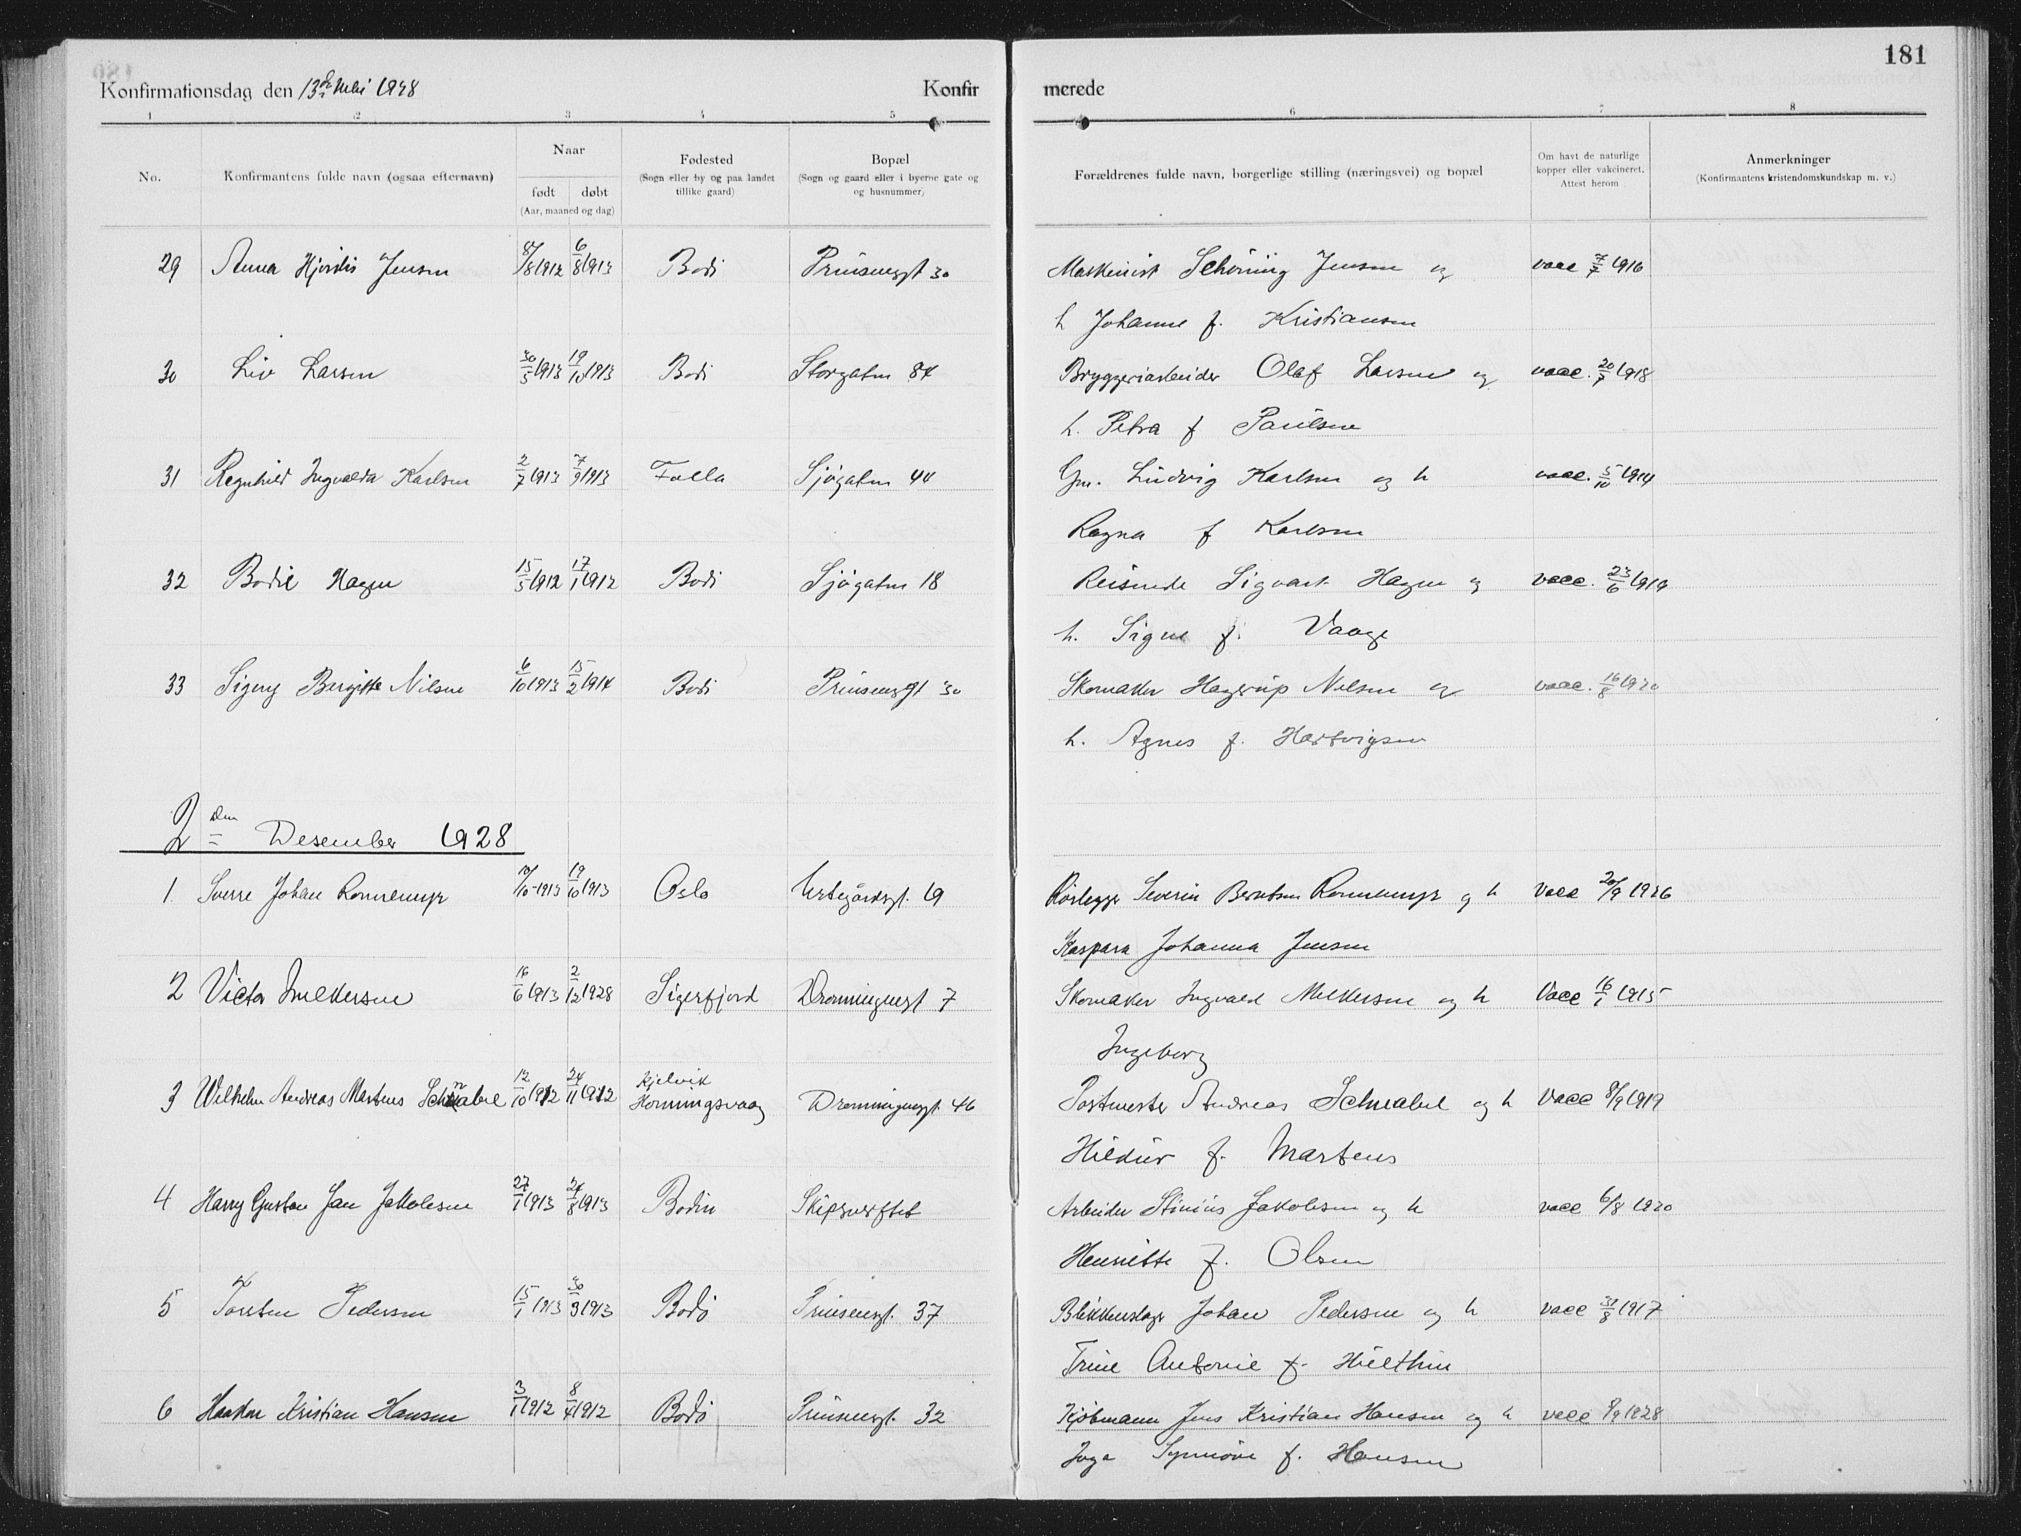 181
Konfirmationsdag den 13de Mai 1928 Konfir merede
1 2 3 4 5 6 7 8
No. Konfirmantens fulde navn (ogsaa efternavn) Naar født døbt (Aar, maaned og dag) Fødested (Sogn eller by og paa landet tillike gaard) Bopæl (Sogn og gaard eller i byerne gate og og husnummer) Forældrenes fulde navn, borgerlige stilling (næringsvei) og bopæl Om havt de naturlige kopper eller vakcineret. Attest herom Anmerkninger (Konfirmantens kristendomskundskap m. v.)
29 Anna Hjørdis Jensen 8/8 1912 6/8 1913 Bodø Prinsensgt 30 Maskinist Schøning Jensen og vacc 7/7 1916
h Johanne f. Kristiansen
30 Liv Larsen 30/5 1913 19/10 1913 Bodø Storgaten 84 Bryggeriarbeider Olaf Larsen og vacc. 20/7 1918
h. Petra f Paulsen
31 Ragnhild Ingvalda Karlsen 2/7 1913 7/9 1913 Folla Sjøgaten 44 Gm. Ludvig Karlsen og h vacc. 5/10 1914
Ragna f Karlsen
32 Bodil Hagen 15/5 1912 17/1 1912 Bodø Sjøgaten 18 Reisende Sigvart Hagen og vacc. 23/6 1919
h. Signe f. Vaage
33 Signy Birgitte Nilsen 6/10 1913 15/2 1914 Bodø Prinsensgt 30 Skomaker Hagerup Nilsen og vacc. 16/8 1920
h. Agnes f. Hartvigsen
2den Desember 1928
1 Sverre Johan Ronnemyr 10/10 1913 19/10 1913 Oslo Urtegårdsgt. 19 Rørlegger Severin Berntsen Ronnemyr og h vacc 20/9 1926
Kaspara Johanna Jensen
2 Victor Melkersen 16/6 1913 2/12 1928 Sigerfjord Dronningensgt 7 Skomaker Ingvald Melkersen og h Vacc 16/1 1915
Ingeborg
3 Wilhelm Andreas Martens Schnabel 12/10 1912 24/11 1912 Kjelvik Honningsvaag Dronningensgt. 46 Postmester Andreas Schnabel og h Vacc 8/9 1919
Hildur f. Martens
4 Harry Gustav Jan Jakobsen 27/1 1913 24/8 1913 Bodin Skipsverftet Arbeider Stinius Jakobsen og h vacc 6/8 1920
Henriette f. Olsen
5 Torsten Pedersen 15/1 1913 30/3 1913 Bodø Prinsensgt. 37 Blikkenslager Johan Pedersen og h vacc 31/8 1917
Trine Antonie f. Hulthin
6 Haakon Kristian Hansen 3/1 1912 8/4 1912 Bodø Prinsensgt. 32 Kjøbmann Jens Kristian Hansen og h vacc 8/9 1928
Inga Synnøve f. Hansen